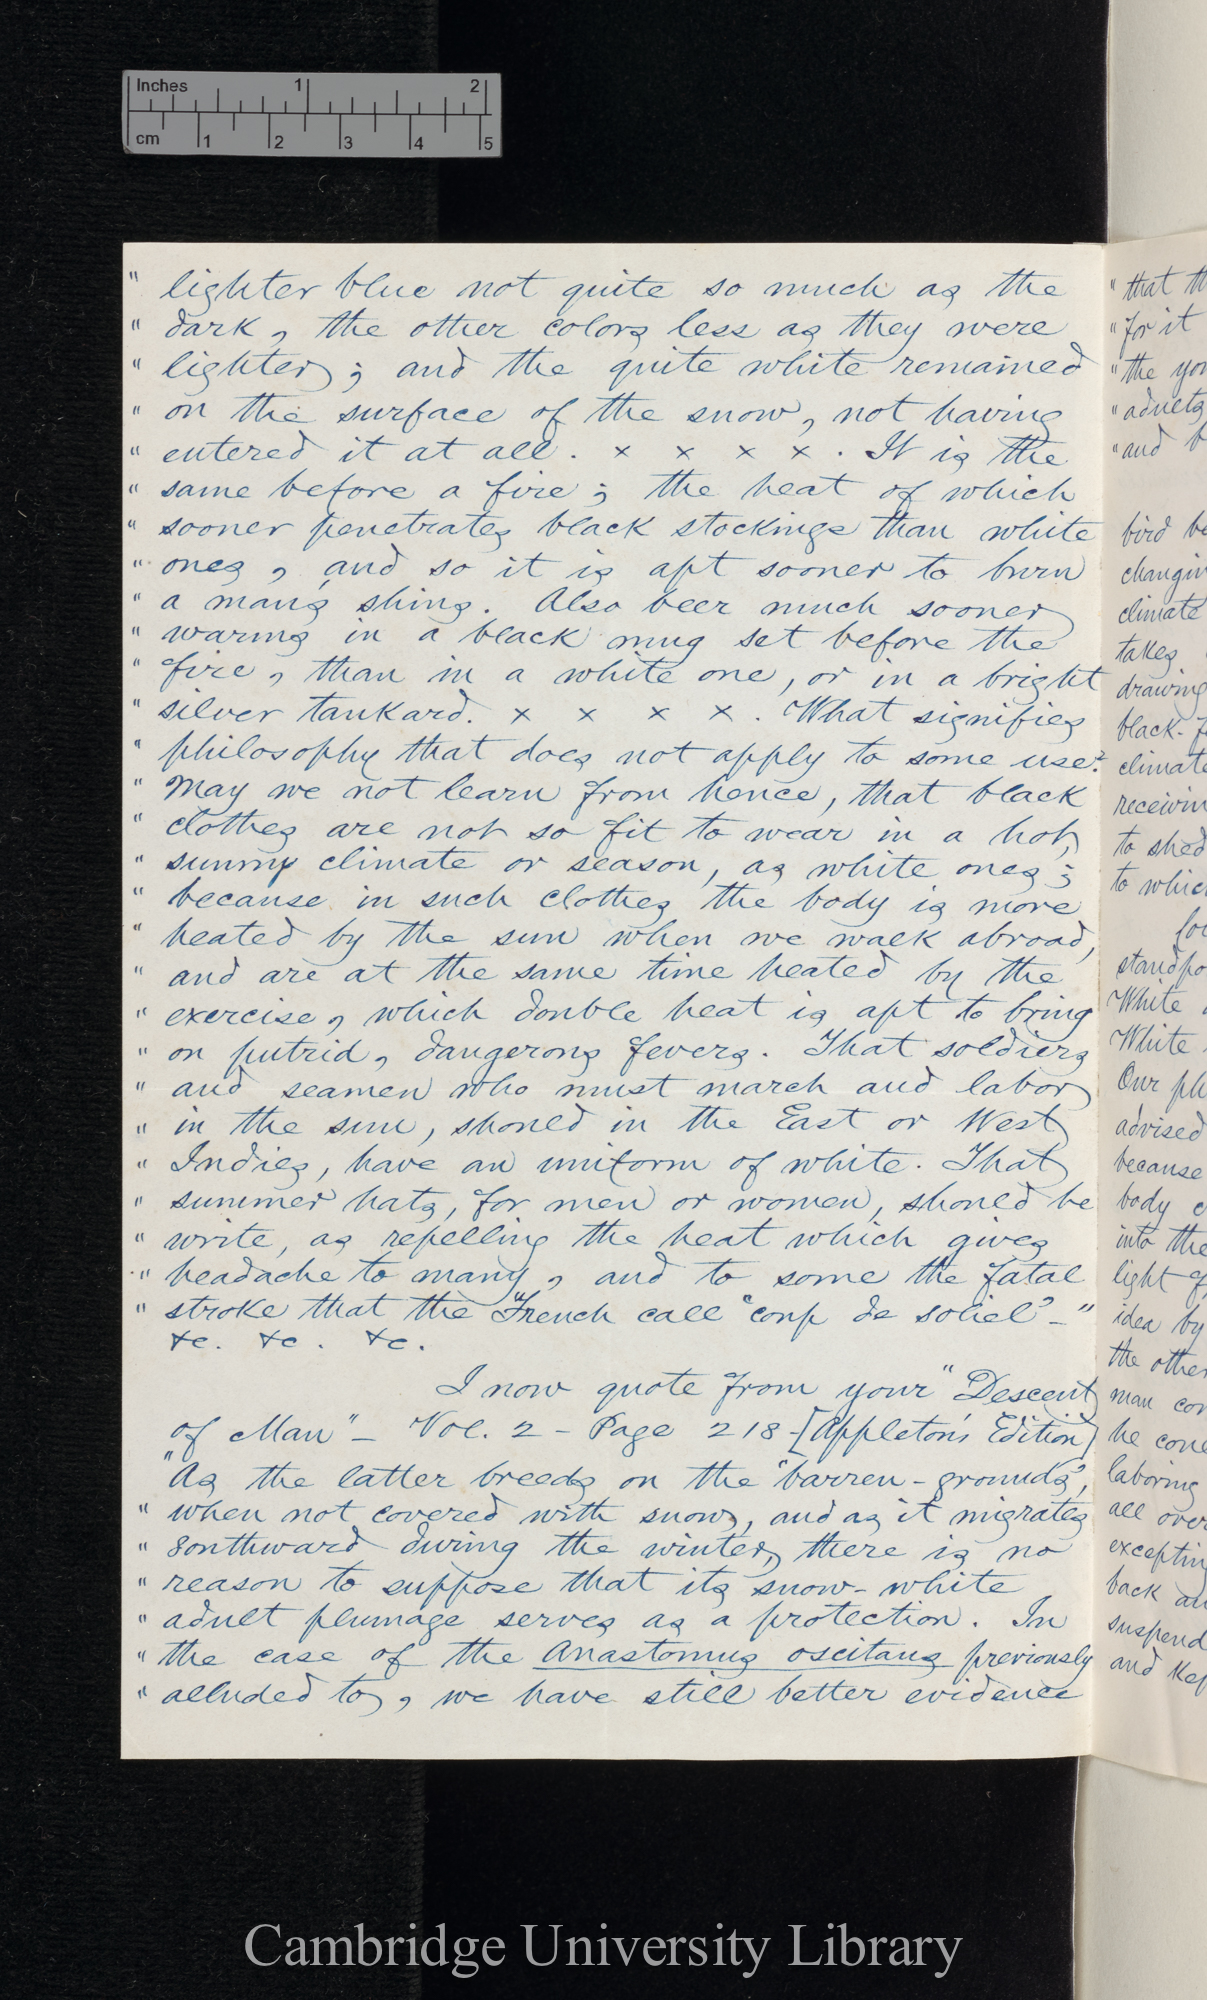 Inches 1 2
cm 1 2 3 4 5
" lighter blue not quite so much as the
" dark, the other colors less as they were
" lighter; and the quite white remained
" on the surface of the snow, not having
" entered it at all. × × × × . It is the
" same before a fire; the heat of which
" sooner penetrates black stockings than white
" ones, and so it is apt sooner to burn
" a man's shins. Also beer much sooner
" warms in a black mug set before the
" fire, than in a white one, or in a bright
" silver tankard. × × × × . What signifies
" philosophy that does not apply to some use?
" May we not learn from hence, that black
" clothes are not so fit to wear in a hot,
" sunny climate or season, as white ones;
" because in such clothes the body is more
" heated by the sun when we walk abroad,
" and are at the same time heated by the
" exercise, which double heat is apt to bring
" on putrid, dangerous fevers. That soldiers
" and seamen who must march and labor
" in the sun, should in the East or West
" Indies, have an uniform of white. That
" summer hats, for men or women, should be
" write, as repelling the heat which gives
" headache to many, and to some the fatal
" stroke that the French call "coup de soliel" – "
&c. &c. &c.
I now quote from your "Descent
of Man" – Vol. 2 – Page 218 – [Appleton's Edition]
"As the latter breeds on the "barren-grounds",
" when not covered with snow, and as it migrates
" southward during the winter, there is no
" reason to suppose that its snow-white
" adult plumage serves as a protection. In
" the case of the Anastomus oscitans previously
" alluded to, we have still better evidence
" that th
" for it
" the you
" adults
" and b
bird be
changin
climate
takes
drawing
black-f
climate
receivin
to shed
to which
for
standpo
White
White
Our ph
advised
because
body o
into the
light of
idea by
the other
man con
he conc
laboring
all over
exceptin
back an
suspend
and kep
Cambridge University Library